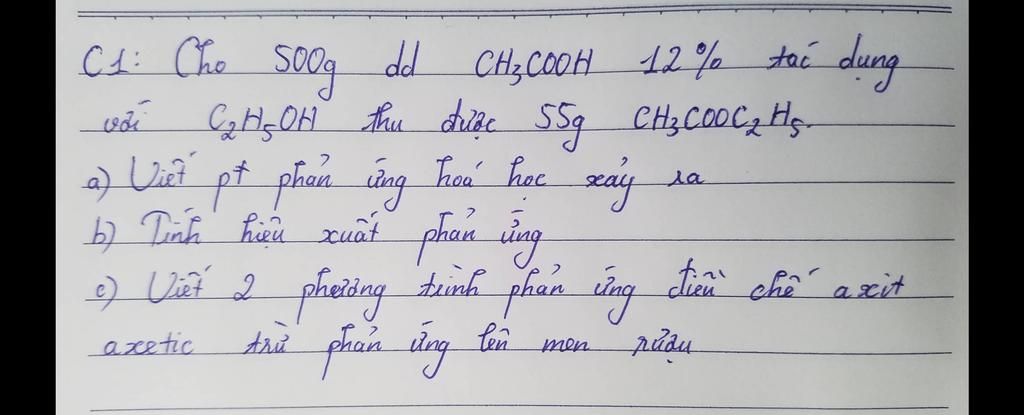 C1: Cho 500g dd CH₃COOH 12% tác dụng
với C₂H₅OH thu được 55g CH₃COOC₂H₅.
a) Viết pt phản ứng hoá học xảy ra
b) Tính hiệu xuất phản ứng
c) Viết 2 phương trình phản ứng điều chế axit
axetic trừ phản ứng lên men rượu